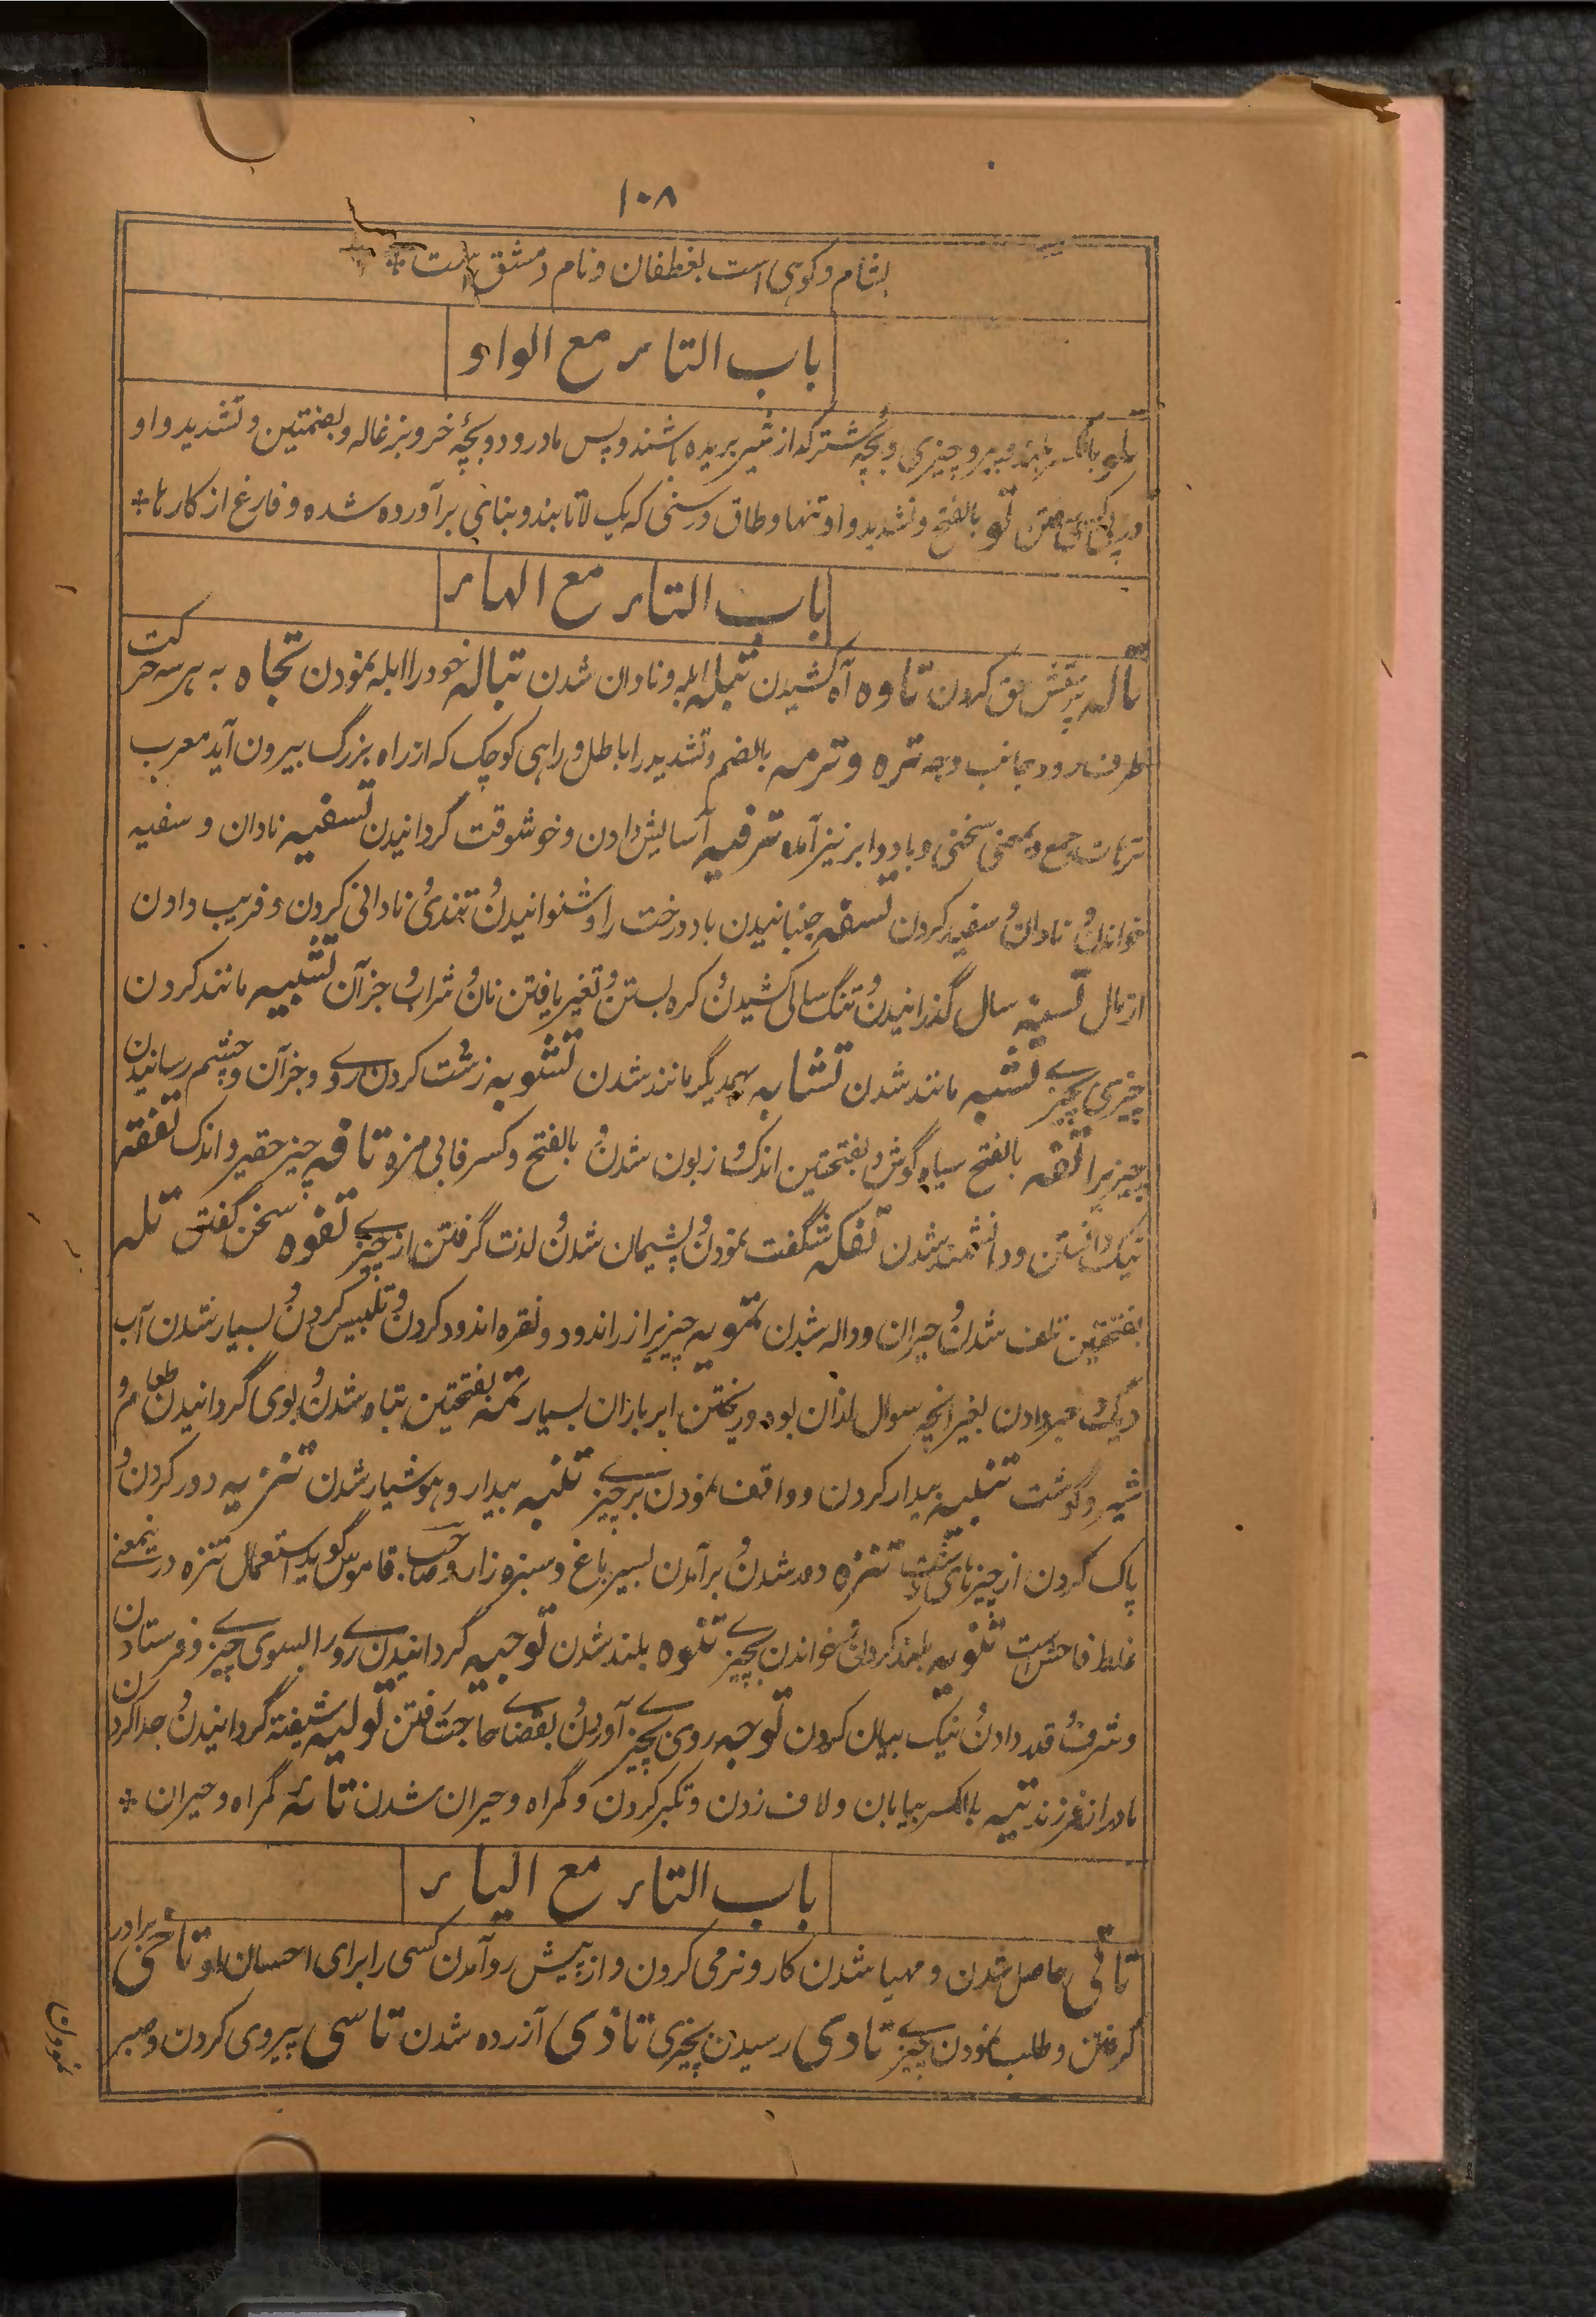 ۱۰۸
بشام و کوهی است بغطفان و نام دمشق است *
باب التاء مع الواو
تلو بالکسر بلند و پیرو چیزی و بچهٔ شتر که از شیر بریده باشند و پس مادر رود و بچهٔ خر و بزغاله و بضمتین و تشدید واو
در پی کسی رفتن تو بالفتح و تشدید واو تنها و طاق و رسنی که یک لا تابند و بنای برآورده شده و فارغ از کارها *
باب التاء مع الهاء
تاله پرستش حق کردن تاوه آه کشیدن تبله ابله و نادان شدن تباله خود را ابله نمودن تجاه به هر سه حرکت
طرف رو و جانب وجه تره و ترهه بالضم و تشدید را باطل و راهی کوچک که از راه بزرگ بیرون آید معرب
ترهات جمع و بمعنی سختی و باد و ابر نیز آمده ترفیه آسایش دادن و خوشوقت گردانیدن تسفیه نادان و سفیه
خواندن و نادان و سفیه کردن تسفه جنبانیدن باد درخت را و شنوانیدن و تندی و نادانی کردن و فریب دادن
از مال تسنیه سال گذرانیدن و تنگ سالی کشیدن و کره بستن و تغیر یافتن نان و شراب و جز آن تشبیه مانند کردن
چیزی بچیزے تشبه مانند شدن تشابه بهمدیگر مانند شدن تشویه زشت کردن روے و جز آن و چشم رسانیدن
بچیزیرا تفه بالفتح سیاه گوش و بفتحتین اندک و زبون شدن و بالفتح و کسر فا بی مزه تافه چیز حقیر و اندک تفقه
نیک دانستن و دانشمند شدن تفکه شگفت نمودن و پشیمان شدن و لذت گرفتن از چیزے تفوه سخن گفتن تله
بفتحتین تلف شدن و حیران و واله شدن تمویه چیزیرا زراندود و نقره اندود کردن و تلبیس کردن و بسیار شدن آب
دیگ و خبر دادن بغیر آنچه سوال ازان بود و ریختن ابر باران بسیار تمه بفتحتین تباه شدن و بوی گردانیدن طعام و
شیر و گوشت تنبیه بیدار کردن و واقف نمودن بر چیزے تنبه بیدار و هوشیار شدن تنزیه دور کردن و
پاک کردن از چیزهای زشت تنزه دور شدن و برآمدن بسیر باغ و سبزه زار و صاحب قاموس گوید استعمال تنزه درینمعنے
غلط فاحش است تنویه بلند کردن و خواندن بچیزے تنوه بلند شدن توجیه گردانیدن روے را بسوی چیزے و فرستادن
و شرف و قدر دادن و نیک بیان کردن توجه روی بچیزے آوردن و بقضاے حاجت رفتن تولیه شیفته گردانیدن و جدا کردن
مادر از فرزند تیه بالکسر بیابان و لاف زدن و تکبر کردن و گمراه و حیران شدن تائه گمراه و حیران *
باب التاء مع الیاء
تاتی حاصل شدن و مهیا شدن کار و نرمی کردن و از پیش رو آمدن کسی را برای احسان او تاخی برادر
گرفتن و طلب نمودن چیزے تادی رسیدن بچیزی تاذی آزرده شدن تاسی پیروی کردن و صبر
نمودن